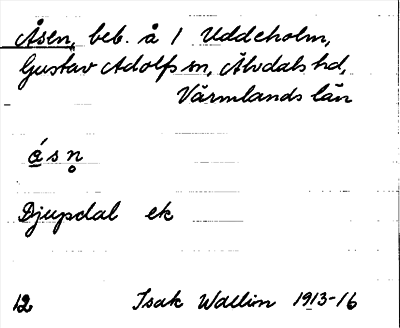 Åsen, beb. å 1 Uddeholm,
Gustav Adolfs sn, Älvdals hd,
Värmlands län
ásn̥
Djupdal ek
12 Isak Wallin 1913-16